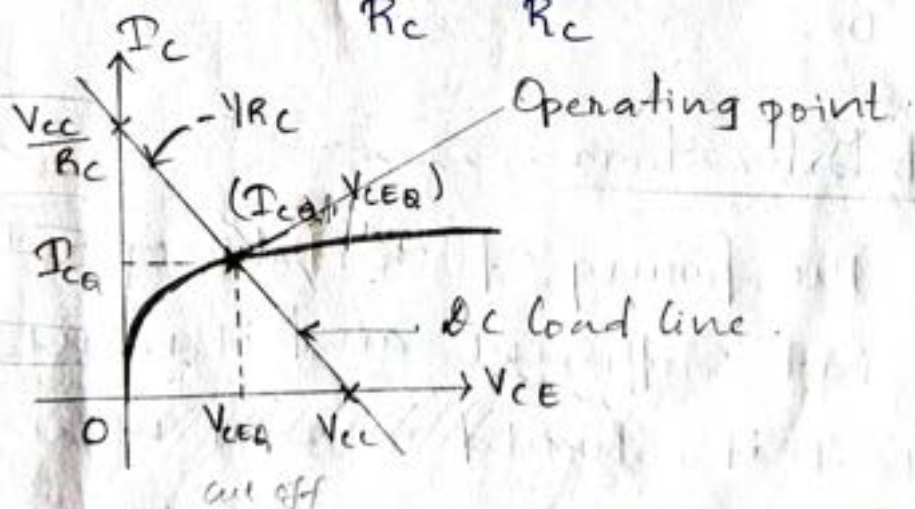 R_C R_C
I_C
V_CC/R_C
-1/R_C
Operating point.
(I_CQ, V_CEQ)
I_CQ
DC load line.
V_CE
O
V_CEQ
V_CC
cut off